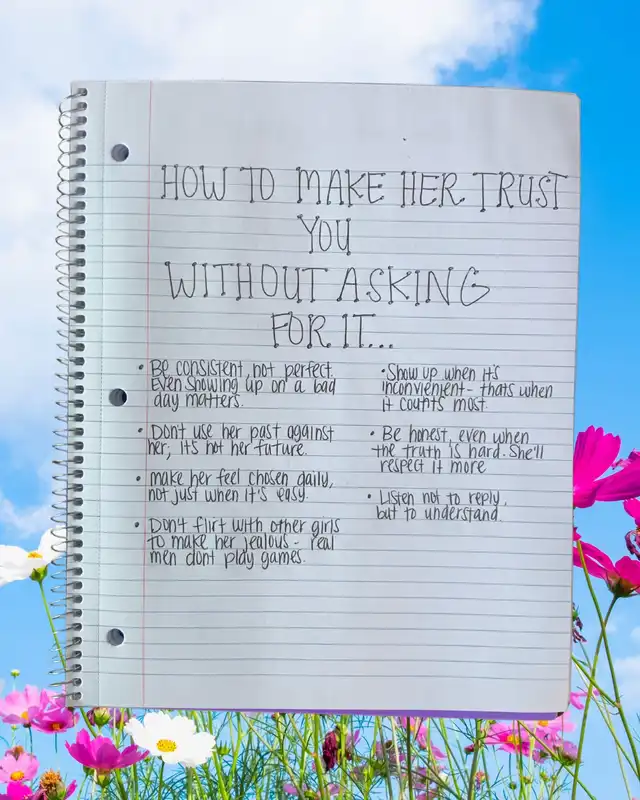 HOW TO MAKE HER TRUST
YOU
WITHOUT ASKING
FOR IT...
• Be consistent, not perfect.
Even showing up on a bad
day matters.
• Don't use her past against
her, it's not her future.
• make her feel chosen daily,
not just when it's easy.
• Don't flirt with other girls
to make her jealous - real
men dont play games.
• Show up when it's
inconvienient - thats when
it counts most.
• Be honest, even when
the truth is hard. She'll
respect it more
• Listen not to reply,
but to understand.